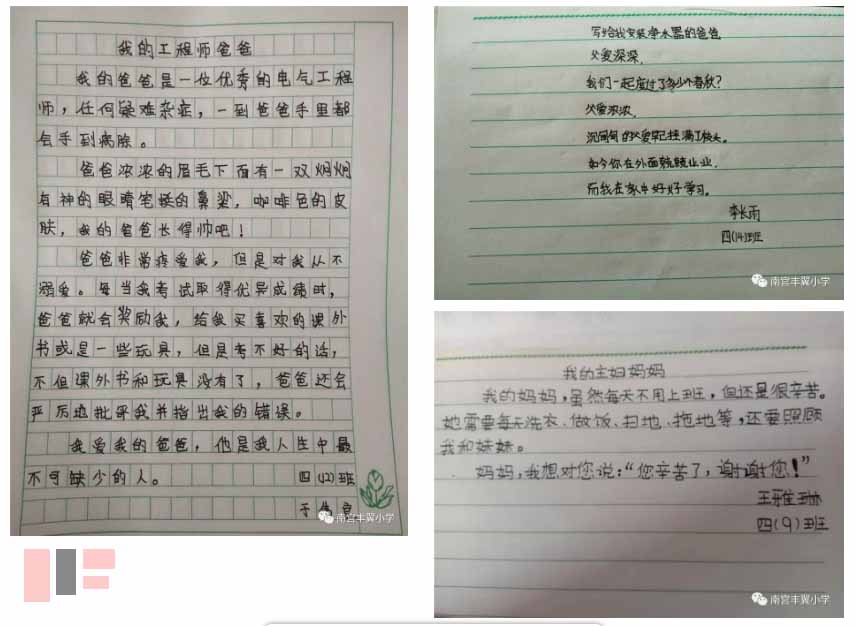 我的工程师爸爸
我的爸爸是一位优秀的电气工程
师，任何疑难杂症，一到爸爸手里都
会手到病除。
爸爸浓浓的眉毛下面有一双炯炯
有神的眼睛笔挺的鼻梁，咖啡色的皮
肤，我的爸爸长得帅吧！
爸爸非常疼爱我，但是对我从不
溺爱。每当我考试取得优异成绩时，
爸爸就会奖励我，给我买喜欢的课外
书或是一些玩具，但是考不好的话，
不但课外书和玩具没有了，爸爸还会
严厉地批评我并指出我的错误。
我爱我的爸爸，他是我人生中最
不可缺少的人。 四(12)班
于
南宫丰翼小学
写给我安装净水器的爸爸
父爱深深，
我们一起度过了多少个春秋？
父爱浓浓，
沉甸甸的父爱早已挂满了枝头。
如今你在外面兢兢业业，
而我在家中好好学习。
李长雨
四(14)班
南宫丰翼小学
我的主妇妈妈
我的妈妈，虽然每天不用上班，但还是很辛苦。
她需要每天洗衣、做饭、扫地、拖地等，还要照顾
我和妹妹。
妈妈，我想对您说：“您辛苦了，谢谢您！”
王雅琳
四(9)班
南宫丰翼小学